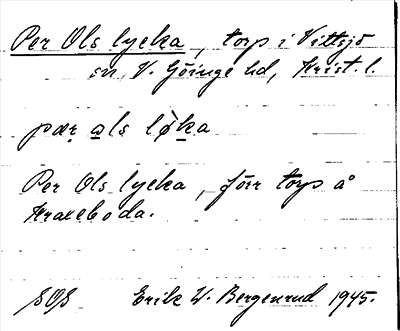 Per Ols lycka, torp i Vittsjö
sn, V. Göinge hd, Krist. l.
pær ạls lø̀ka
Per Ols lycka, förr torp å
Kraxeboda.
SOS Erik W. Bergenrud 1945.